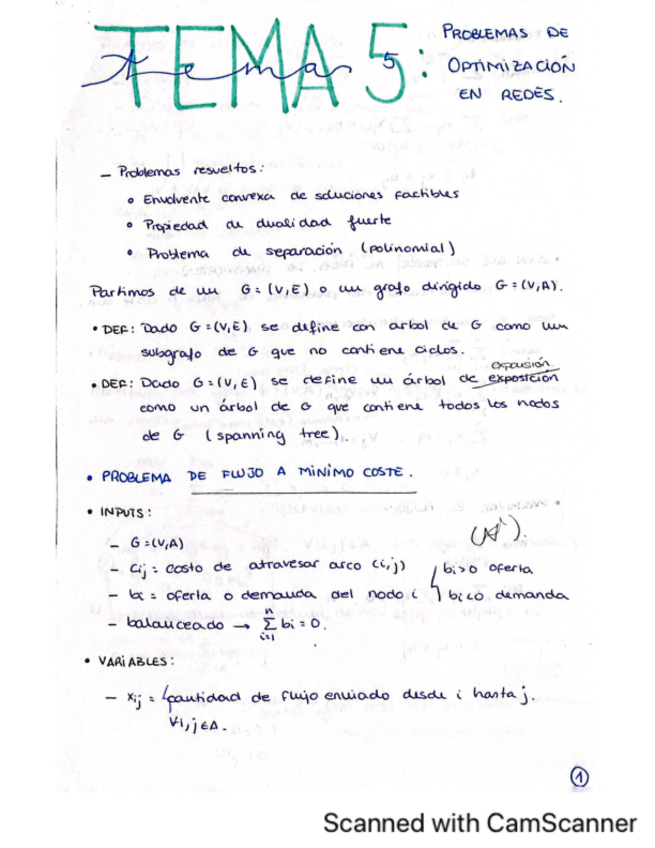 TEMA 5:
tema 5
PROBLEMAS DE
OPTIMIZACIÓN
EN REDES.
- Problemas resueltos:
• Envolvente convexa de soluciones factibles
• Propiedad de dualidad fuerte
• Problema de separación (polinomial)
Partimos de un G=(V,E) o un grafo dirigido G=(V,A).
• DEF: Dado G=(V,E) se define con arbol de G como un
subgrafo de G que no contiene ciclos.
expansión
• DEF: Dado G=(V,E) se define un árbol de exposición
como un árbol de G que contiene todos los nodos
de G (spanning tree).
• PROBLEMA DE FLUJO A MÍNIMO COSTE.
• INPUTS:
- G=(V,A)
- Cij = costo de atravesar arco (i,j)
bi>0 oferta
- bi = oferta o demanda del nodo i
bi<0 demanda
- balanceado → Σ bi = 0.
n
i=1
• VARIABLES:
- xij = cantidad de flujo enviado desde i hasta j.
∀i,j∈A.
1
Scanned with CamScanner